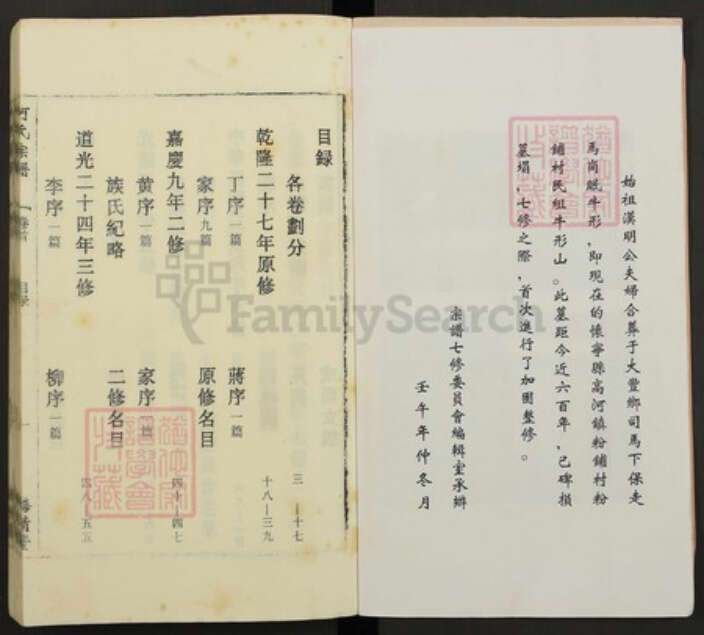 始祖漢明公夫婦合葬于大豐鄉司馬下保走
馬崗眠牛形，即現在的懷寧縣高河鎮粉鋪村粉
鋪村民組牛形山。此墓距今近六百年，已碑損
墓塌，七修之際，首次進行了加固整修。
宗譜七修委員會編輯室承辦
壬午年仲冬月
目録
各卷劃分 三—十七
乾隆二十七年原修
丁序一篇 蔣序一篇 十八—三九
家序九篇 原修名目
嘉慶九年二修
黄序一篇 家序一篇 四十—四七
族氏紀略 二修名目
道光二十四年三修 四八—五五
李序一篇 柳序一篇
何氏宗譜 卷首 目録
FamilySearch